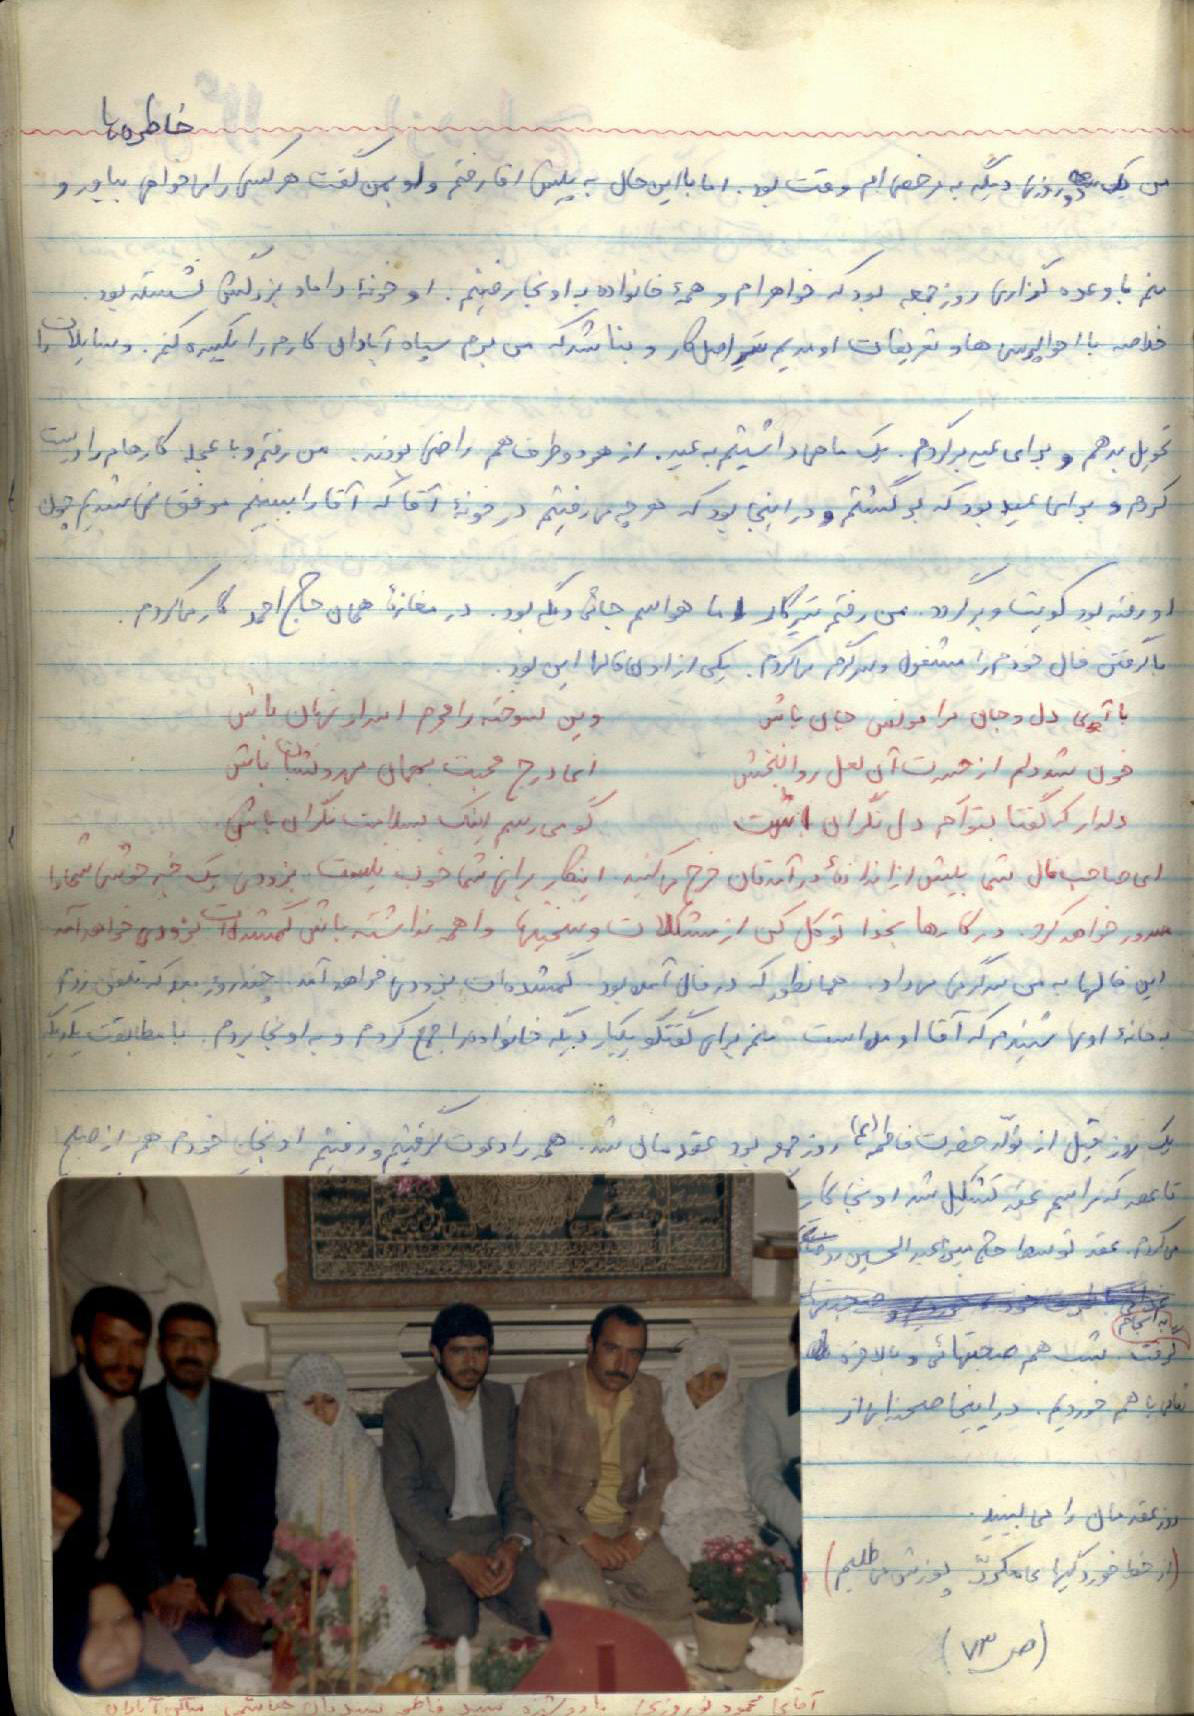 خاطره ها
من یک دو روزی دیگه به مرخصی ام وقت بود. اما با این حال به پیش آقا رفتم و او بمن گفت هر کسی را می خواهی بیاور و
منم با وعده گذاری روز جمعه بود که خواهرام و همهٔ خانواده به اونجا رفتیم. او خونهٔ داماد بزرگش نشسته بود.
خلاصه با احوالپرسی ها و تعریفات اومدیم سر اصل کار و بنا شد که من بروم سپاه آبادان کارم را یکسره کنم. وسایلات را
تحویل بدهم و برای عید برگردم. یک ماهی داشتیم به عید. از هر دو طرف هم راضی بودند. من رفتم و با عجله کارهام را درست
کردم و برای عید بود که برگشتم و در اینجا بود که هر چه می رفتیم در خونهٔ آقا که آقا را ببینیم موفق نمی شدیم چون
او رفته بود کویت و برگرده. من رفتم سر کار اما حواسم جائی دیگه بود. در مغازهٔ همان حاج احمد کار میکردم.
با گرفتن فال خودم را مشغول و سرگرم می کردم. یکی از اون فالها این بود.
باز آی دل و جان مرا مونس جان باش وین سوخته را محرم اسرار نهان باش
خون شد دلم از حسرت آن لعل روانبخش ای درج محبت بهمان مهر و نشان باش
دلدار که گفتا بتوام دل نگران است گو می رسم اینک بسلامت نگران باش.
ای صاحب فال شما بیش از اندازهٔ درآمدتان خرج می کنید. اینکار برای شما خوب نیست. بزودی یک خبر خوشی شما را
مسرور خواهد کرد. در کارها بخدا توکل کن از مشکلات و سختیها واهمه نداشته باش گمشده ات بزودی خواهد آمد
این فالها به من سرگرمی می داد. همانطور که در فال آمده بود گمشده ات بزودی خواهد آمد. چند روز بعد که تلفن زدم
به خانهٔ اونها شنیدم که آقا اومده است منم برای گفتگو یکبار دیگه خانواده را جمع کردم و به اونجا بردم. با مطابقت یکدیگه
یک روز قبل از تولد حضرت فاطمه (س) روز جمعه بود عقدمان شد. همه را دعوت گرفتیم و رفتیم اونجا. خودم هم از صبح
تا عصر که مراسم عقد تشکیل شد اونجا کار
می کردم. عقد توسط حاج میرزا عبدالحسین
به انجام
گرفت. شب هم صحبتهائی و بالاخره
شام با هم خوردیم. در اینجا صحنه ای از
روز عقدمان را می بینید.
(از خط خوردگیها پوزش می طلبیم)
(ص ۷۳)
آقای محمود نوروزی با دوشیزه سید فاطمه ساکن آبادان